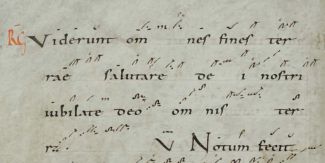 RG Viderunt om nes fines ter
rae salutare de i nostri
iubilate deo om nis ter
ra. V Notum fecit